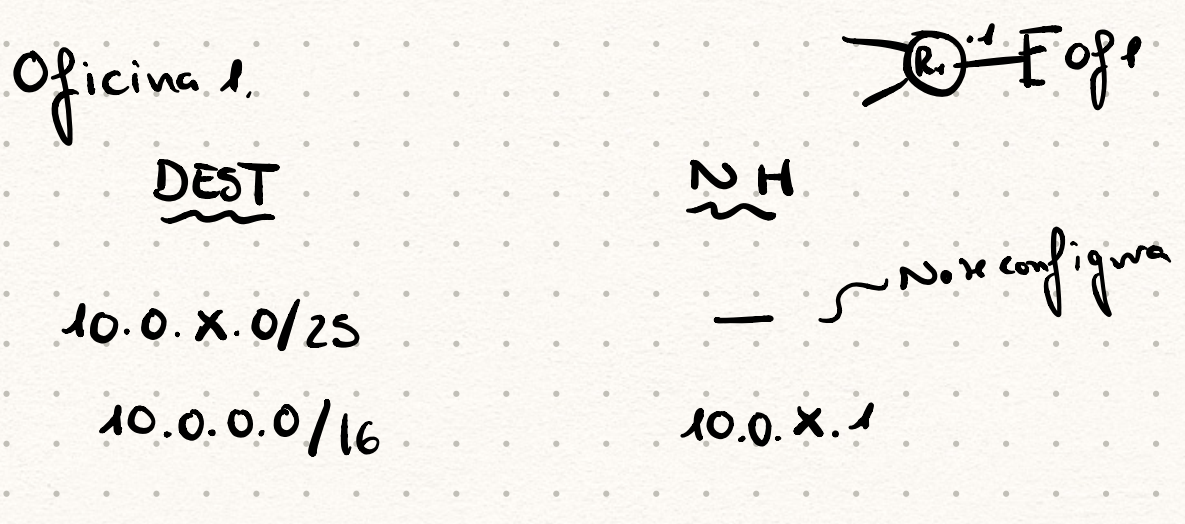 Oficina 1.
R1 .1 Of 1
DEST NH
10.0.X.0/25 — No se configura
10.0.0.0/16 10.0.X.1